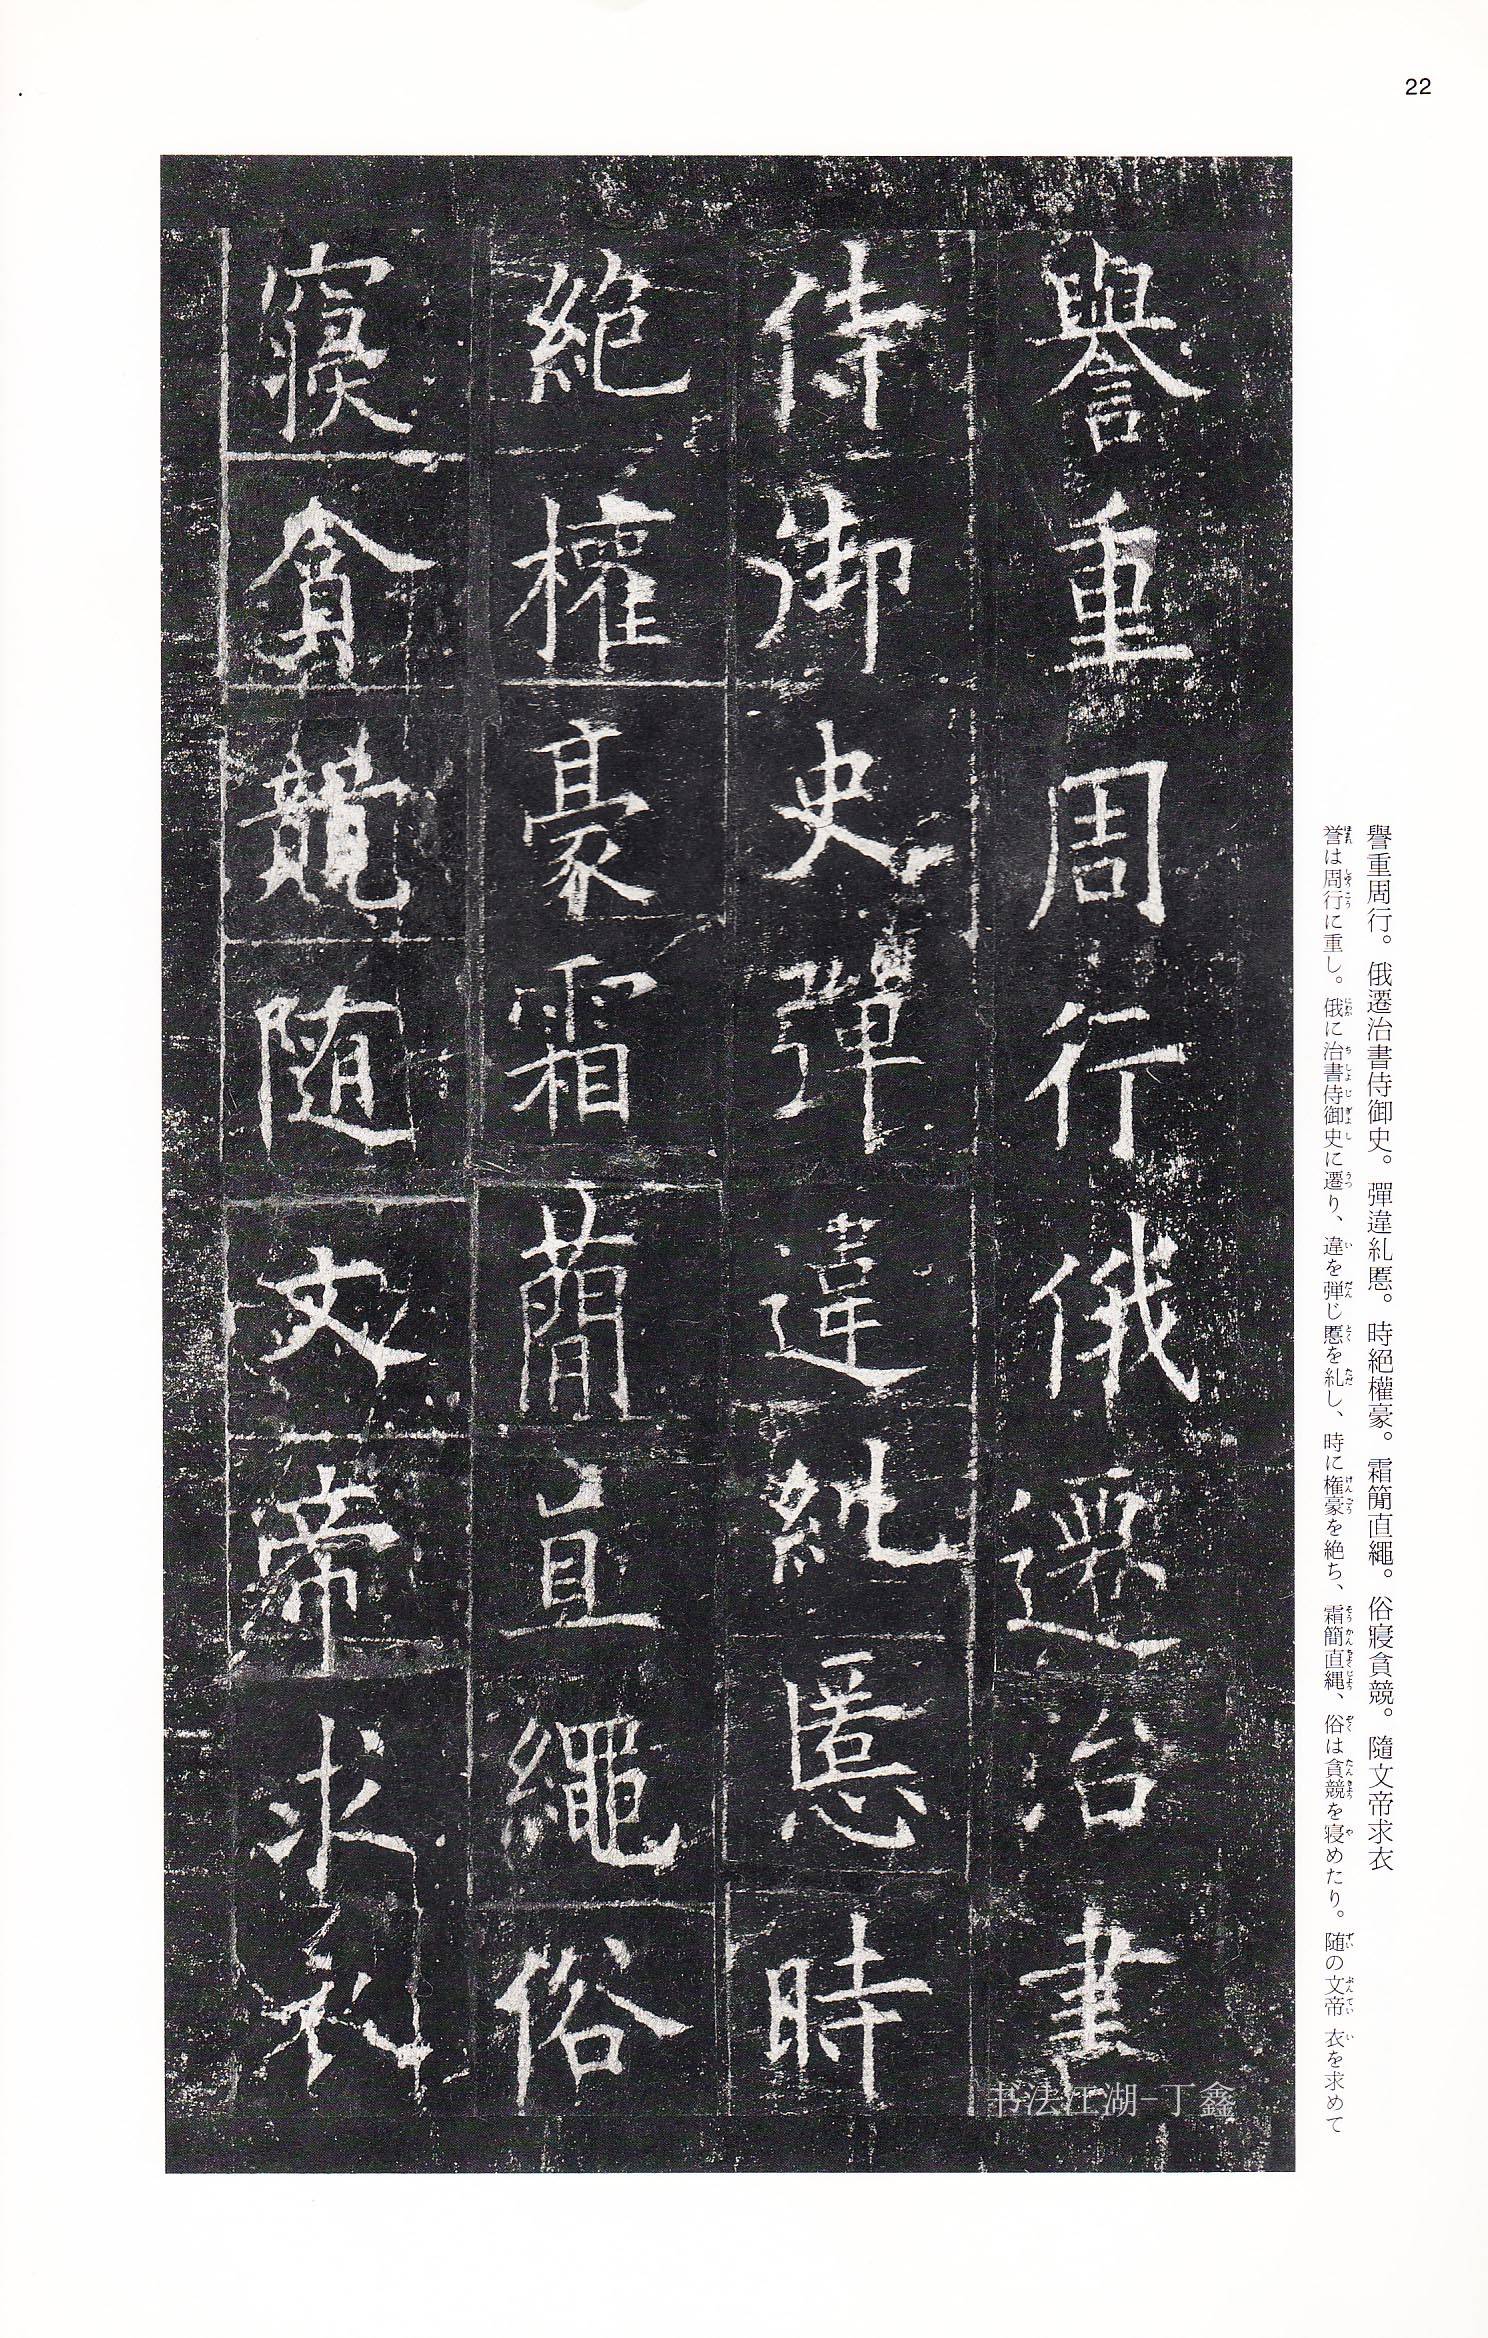 22
譽重周行。俄遷治書侍御史。彈違糺慝。時絕權豪。霜簡直繩。俗寢貪競。隨文帝求衣
誉は周行に重し。俄に治書侍御史に遷り、違を弾じ慝を糺し、時に権豪を絶ち、霜簡直縄、俗は貪競を寝めたり。随の文帝 衣を求めて
譽重周行俄遷治書
侍御史彈違糺慝時
絶權豪霜蕳直繩俗
寢貪競随文帝求衣
书法江湖-丁鑫